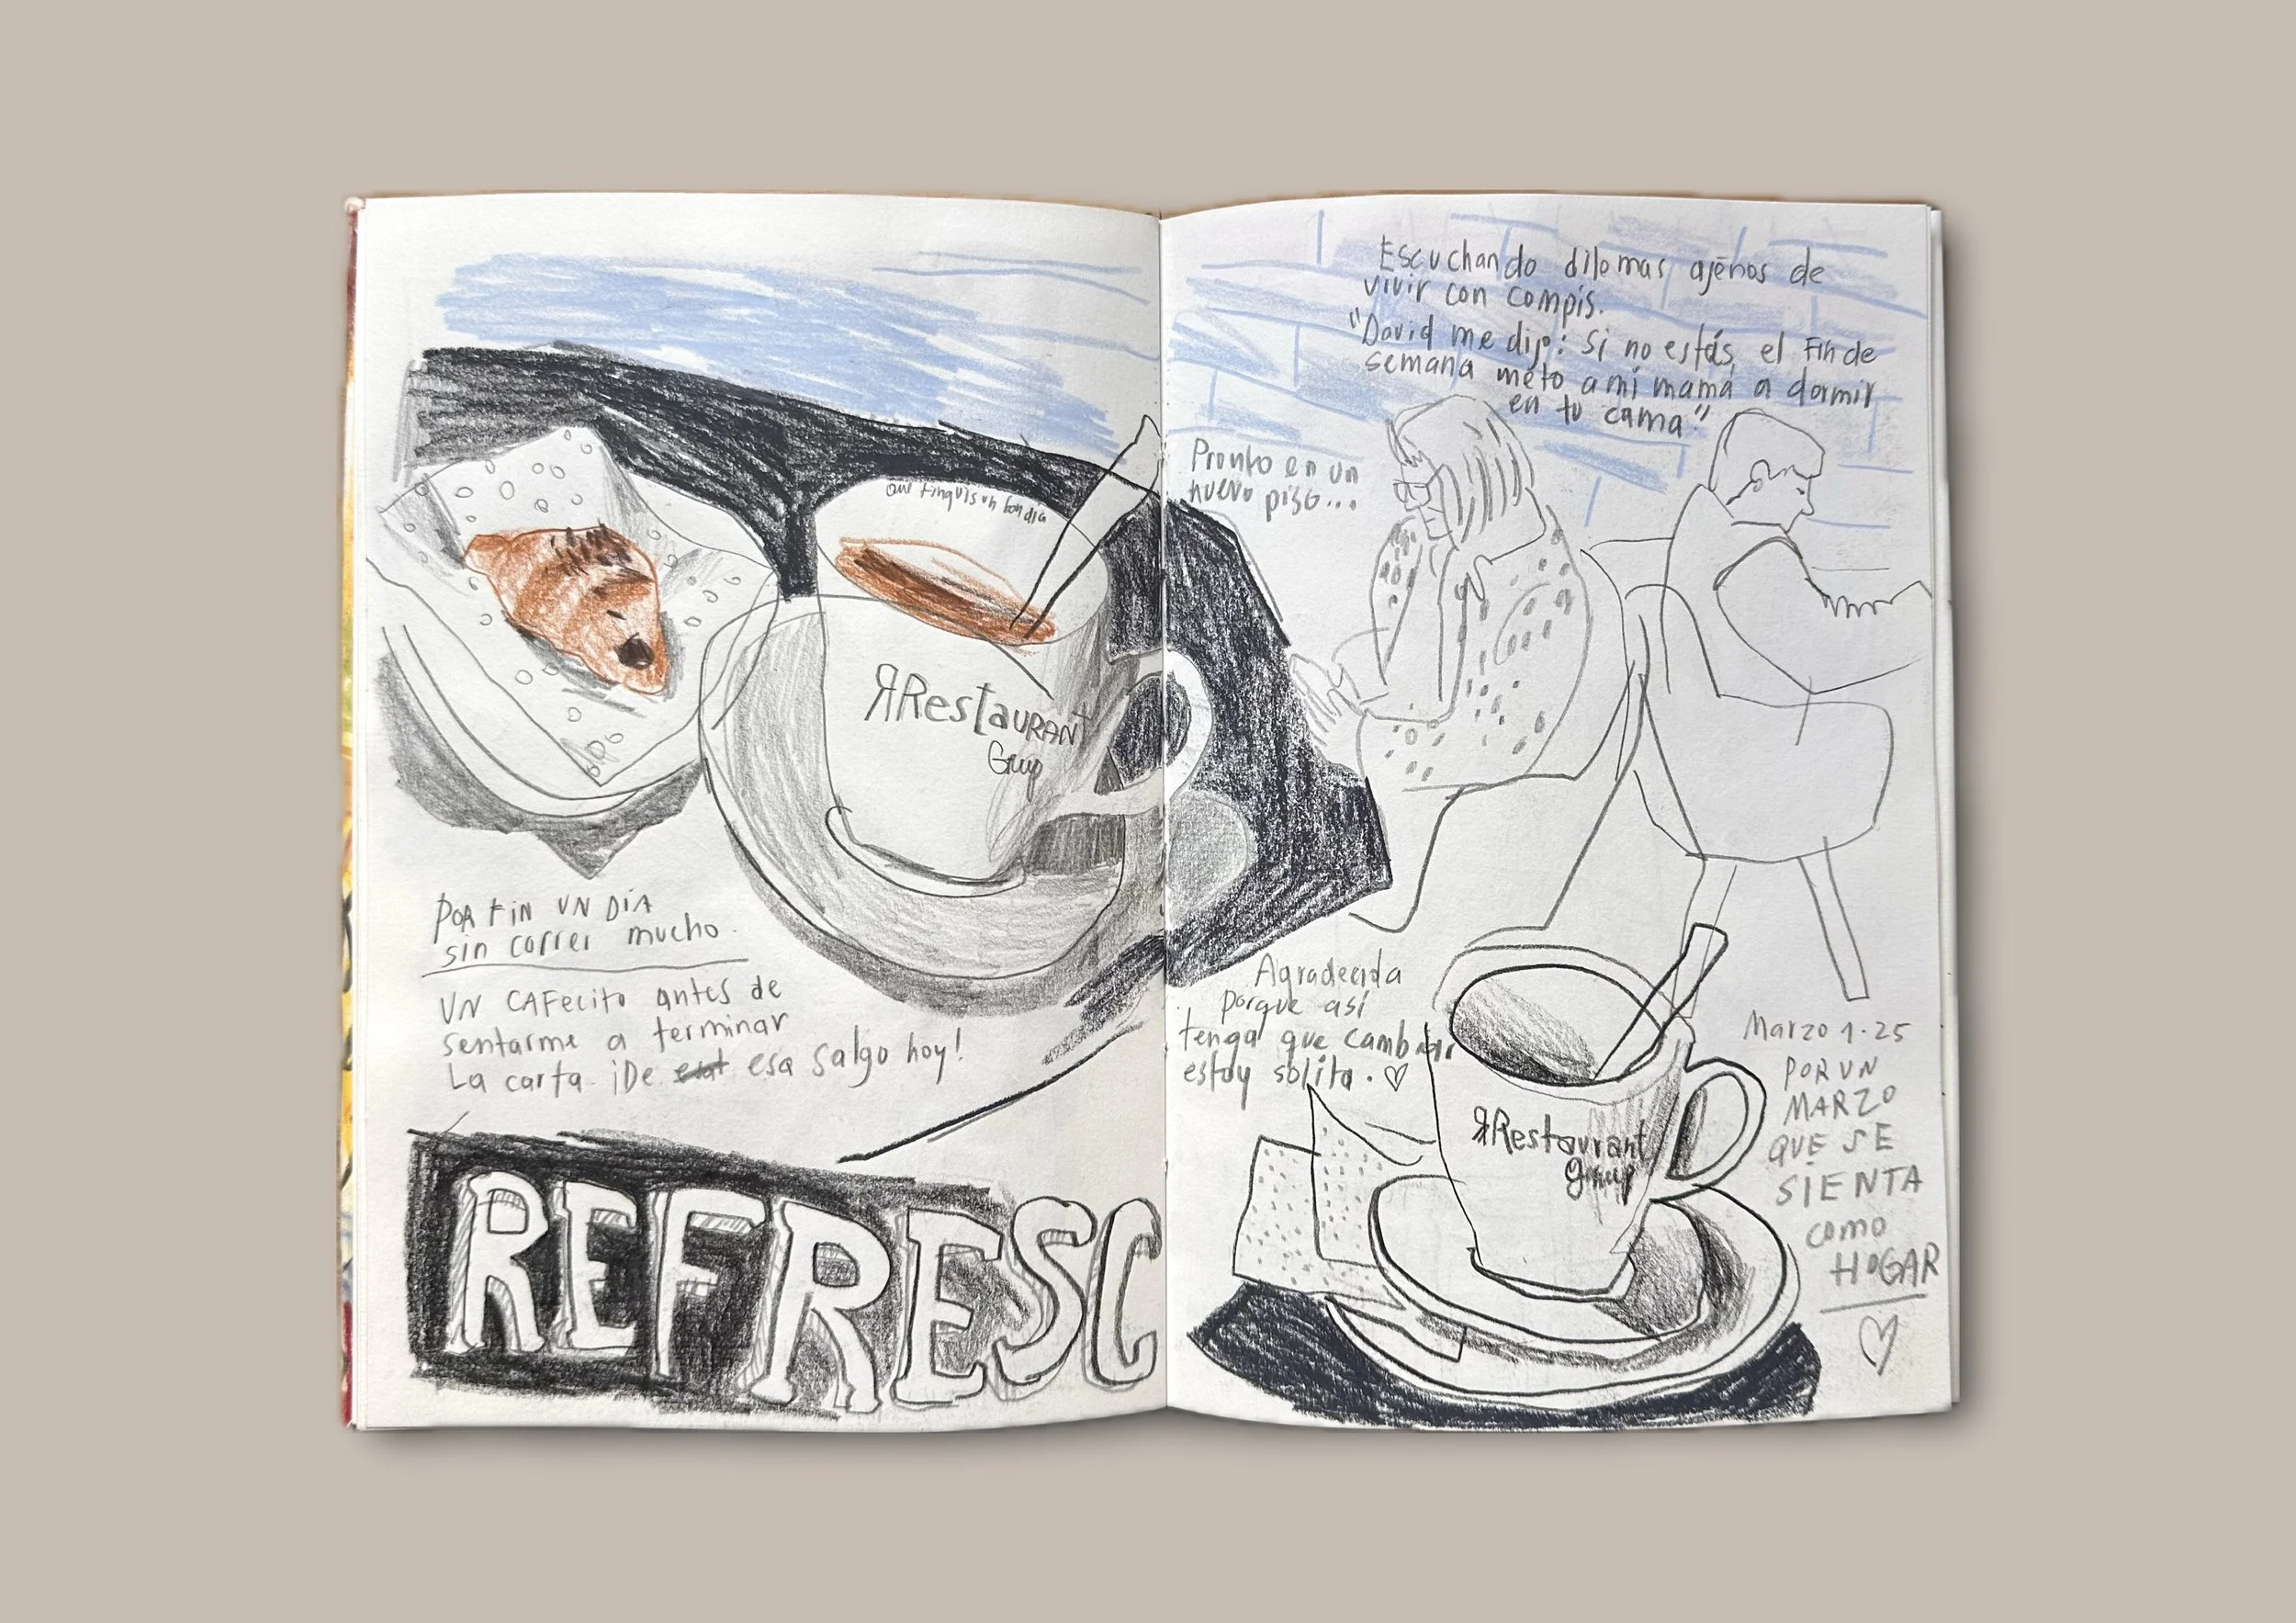 que tinguis un bon dia
ЯRestaurant
Grup
POR FIN UN DÍA
sin correr mucho.
UN CAFecito antes de
sentarme a terminar
La carta. ¡De esa salgo hoy!
REFRESC
Escuchando dilemas ajenos de
vivir con compis.
"David me dijo: Si no estás, el Fin de
semana meto a mi mamá a dormir
en tu cama"
Pronto en un
nuevo piso...
Agradecida
porque así
tenga que cambiar
estoy solita. ♡
ЯRestaurant
Grup
Marzo 1-25
POR UN
MARZO
QUE SE
SIENTA
como
HOGAR
♡